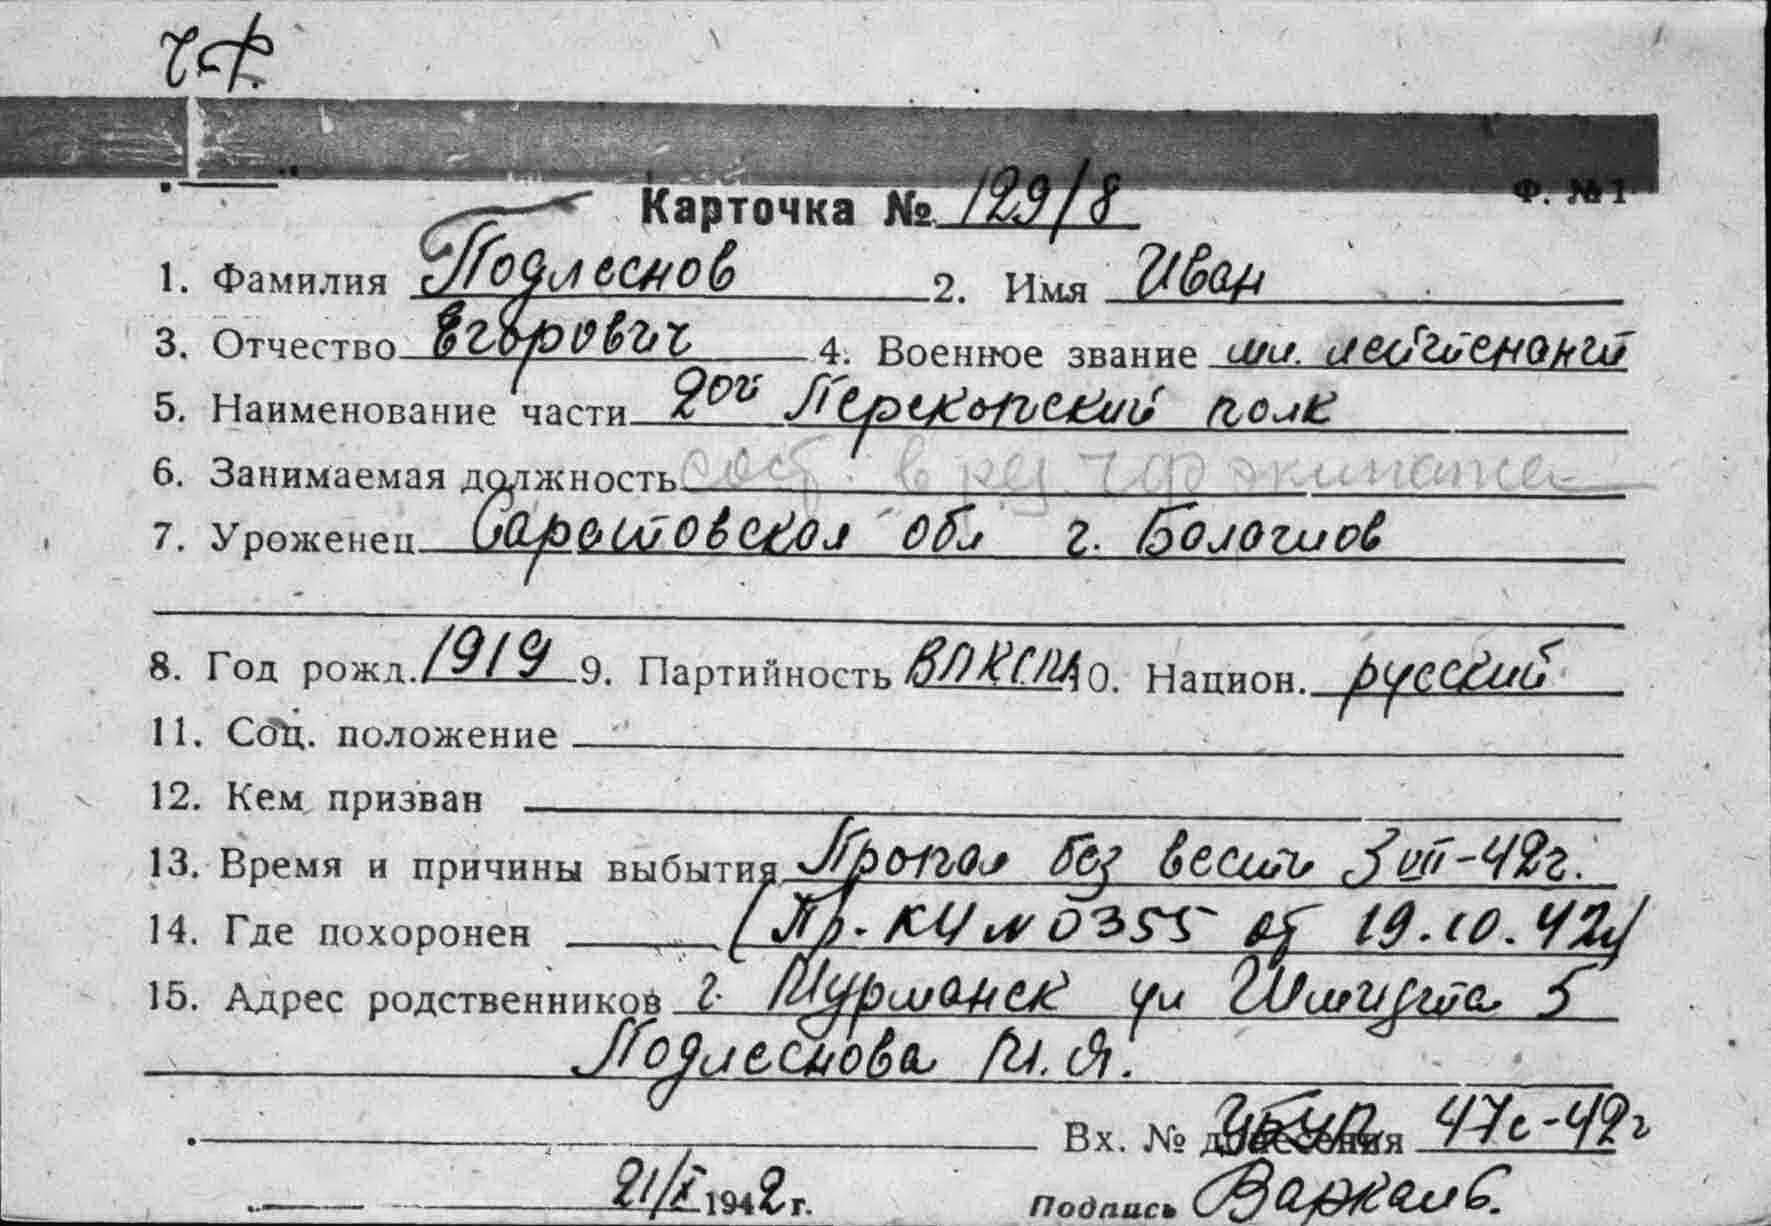 ЧФ.
Ф. №1
Карточка № 129/8
1. Фамилия Подлеснов 2. Имя Иван
3. Отчество Егорович 4. Военное звание мл. лейтенант
5. Наименование части 2ой Перекопский полк
6. Занимаемая должность сост. в рез ЧФ экипаже
7. Уроженец Саратовская обл г. Балашов
8. Год рожд. 1919 9. Партийность ВПКСПА 10. Национ. русский
11. Соц. положение
12. Кем призван
13. Время и причины выбытия Пропал без вести 3 VII-42г.
14. Где похоронен (Пр. КЧ N 0355 от 19.10.42г)
15. Адрес родственников г. Мурманск ул Шмидта 5
Подлеснова М. Я.
Вх. № донесения 47с-42г
21/X 1942 г. Подпись